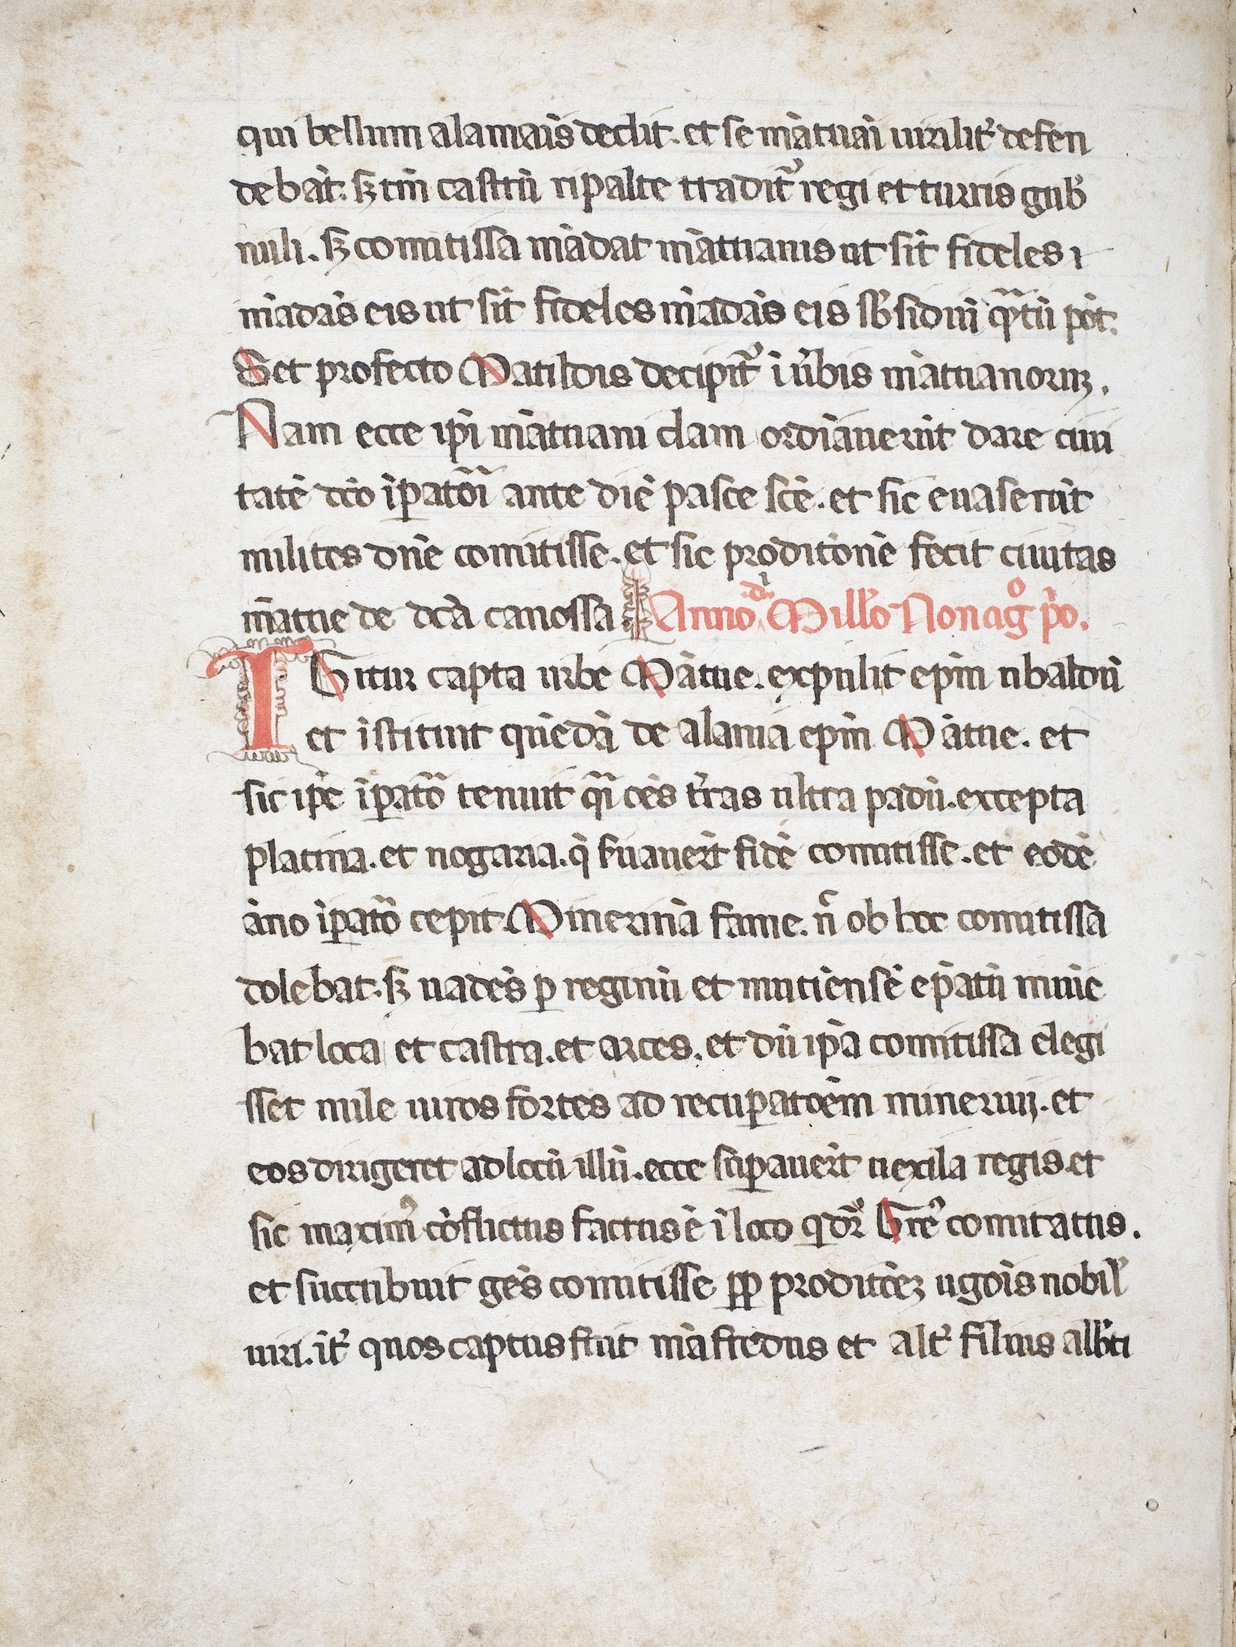 qui bellum alamais dedit. et se mātuāi uirilit' defen
debāt. sȝ tm̄ castrū ripalte tradit' regi et turris gub'
nuli. sȝ comitissa mādat mātuanis ut sīt fideles ı
mādās eis ut sīt fideles mādās eis sb'sidiū qͣtū pōt.
Set profecto Matildis decipit' ī ūbis mātuanorum.
Nam ecce ip̄i mātuani clam ordīauerūt dare ciui
tatē dc̄o īp̄atōi ante diē pasce sc̄e. et sic euaserūt
milites dn̄e comitisse. et sic proditōne fecit ciuitas
mātue de dc̄a canossa Anno dn̄i Mill'o Nonagº p̄o.
IGitur capta urbe Mātue. expulit ep̄m ubaldū
et īstituit quēdā de alamīa ep̄m Mātue. et
sic ip̄e īp̄atō tenuit qͣi cēs t'ras ultra padū. excepta
platina. et nogaria. q̄ s'uauer̄t fidē comitisse. et eodē
āno īp̄atō cepit Mineruiā fame. n̄ ob hoc comitissa
dolebat. sȝ uadēs p̱ reginū et mutiēnsē ep̄atū munie
bat loca et castra. et arces. et dū ip̄a comitissa elegi
sset mile uiros fortes ad recup̱atōem mineruij. et
eos dirigeret ad locū illū. ecce sup̱auer̄t uexila regis. et
sic maxim' cōflictus factus ē ī loco q̄ dr̄ Gre' comitatus.
et succūbuit gēs comitisse p̱p̱ proditōeȝ ugōis nobil'
uiri. īt' quos captus fuit māfredus et alt' filius alb'ti